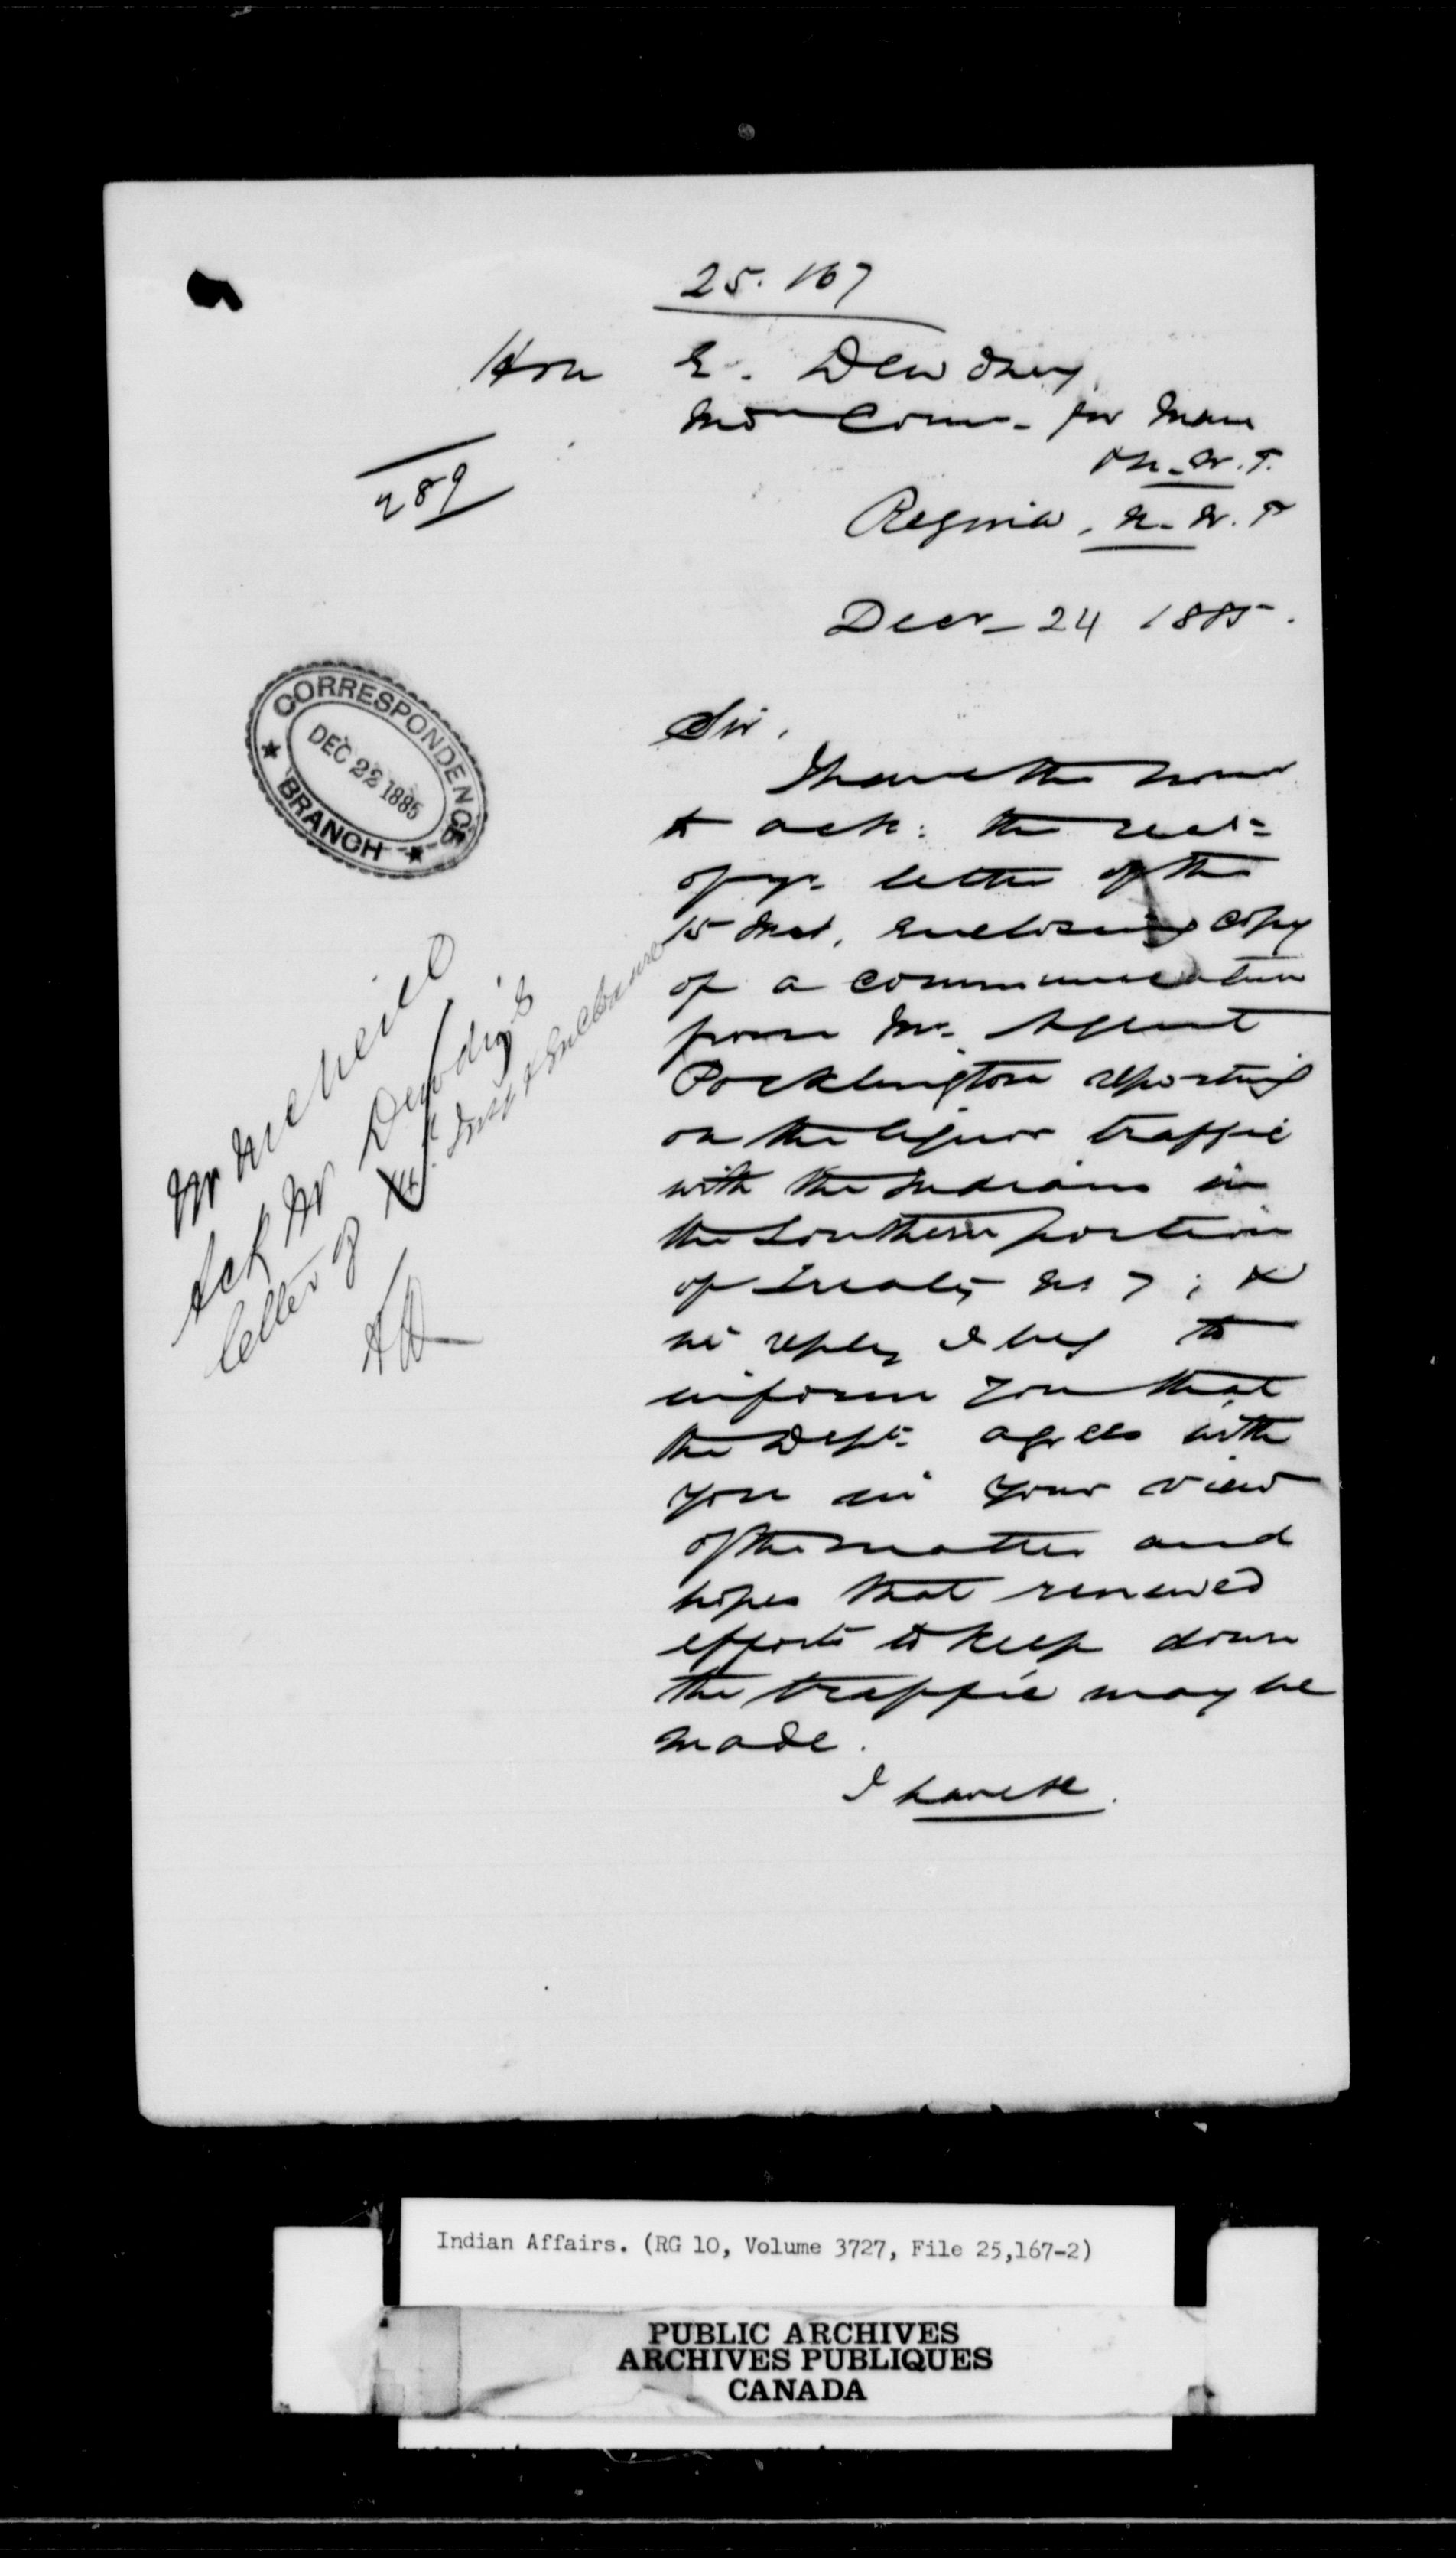 25.167
Hon E. Dewdney,
Ind Comr. for Man
& N.W.T.
Regina, N.W.T
289
Decr 24 1885.
CORRESPONDENCE
DEC 22 1885
BRANCH
Sir,
I have the honor
to ack: the rect=
of yr. letter of the
15 Inst, enclosing copy
of a communication
from Mr. Agent
Pocklington reporting
on the liquor traffic
with the Indians in
the Southern portion
of Treaty No 7; &
in reply I beg to
inform you that
the Dept: agrees with
you in your view
of the matter and
hopes that renewed
efforts to keep down
the traffic may be
made.
I have &c.
Mr McNeill
Ack Mr Dewdney's
letter of 15th Inst & Enclosure
Indian Affairs. (RG 10, Volume 3727, File 25,167-2)
PUBLIC ARCHIVES
ARCHIVES PUBLIQUES
CANADA